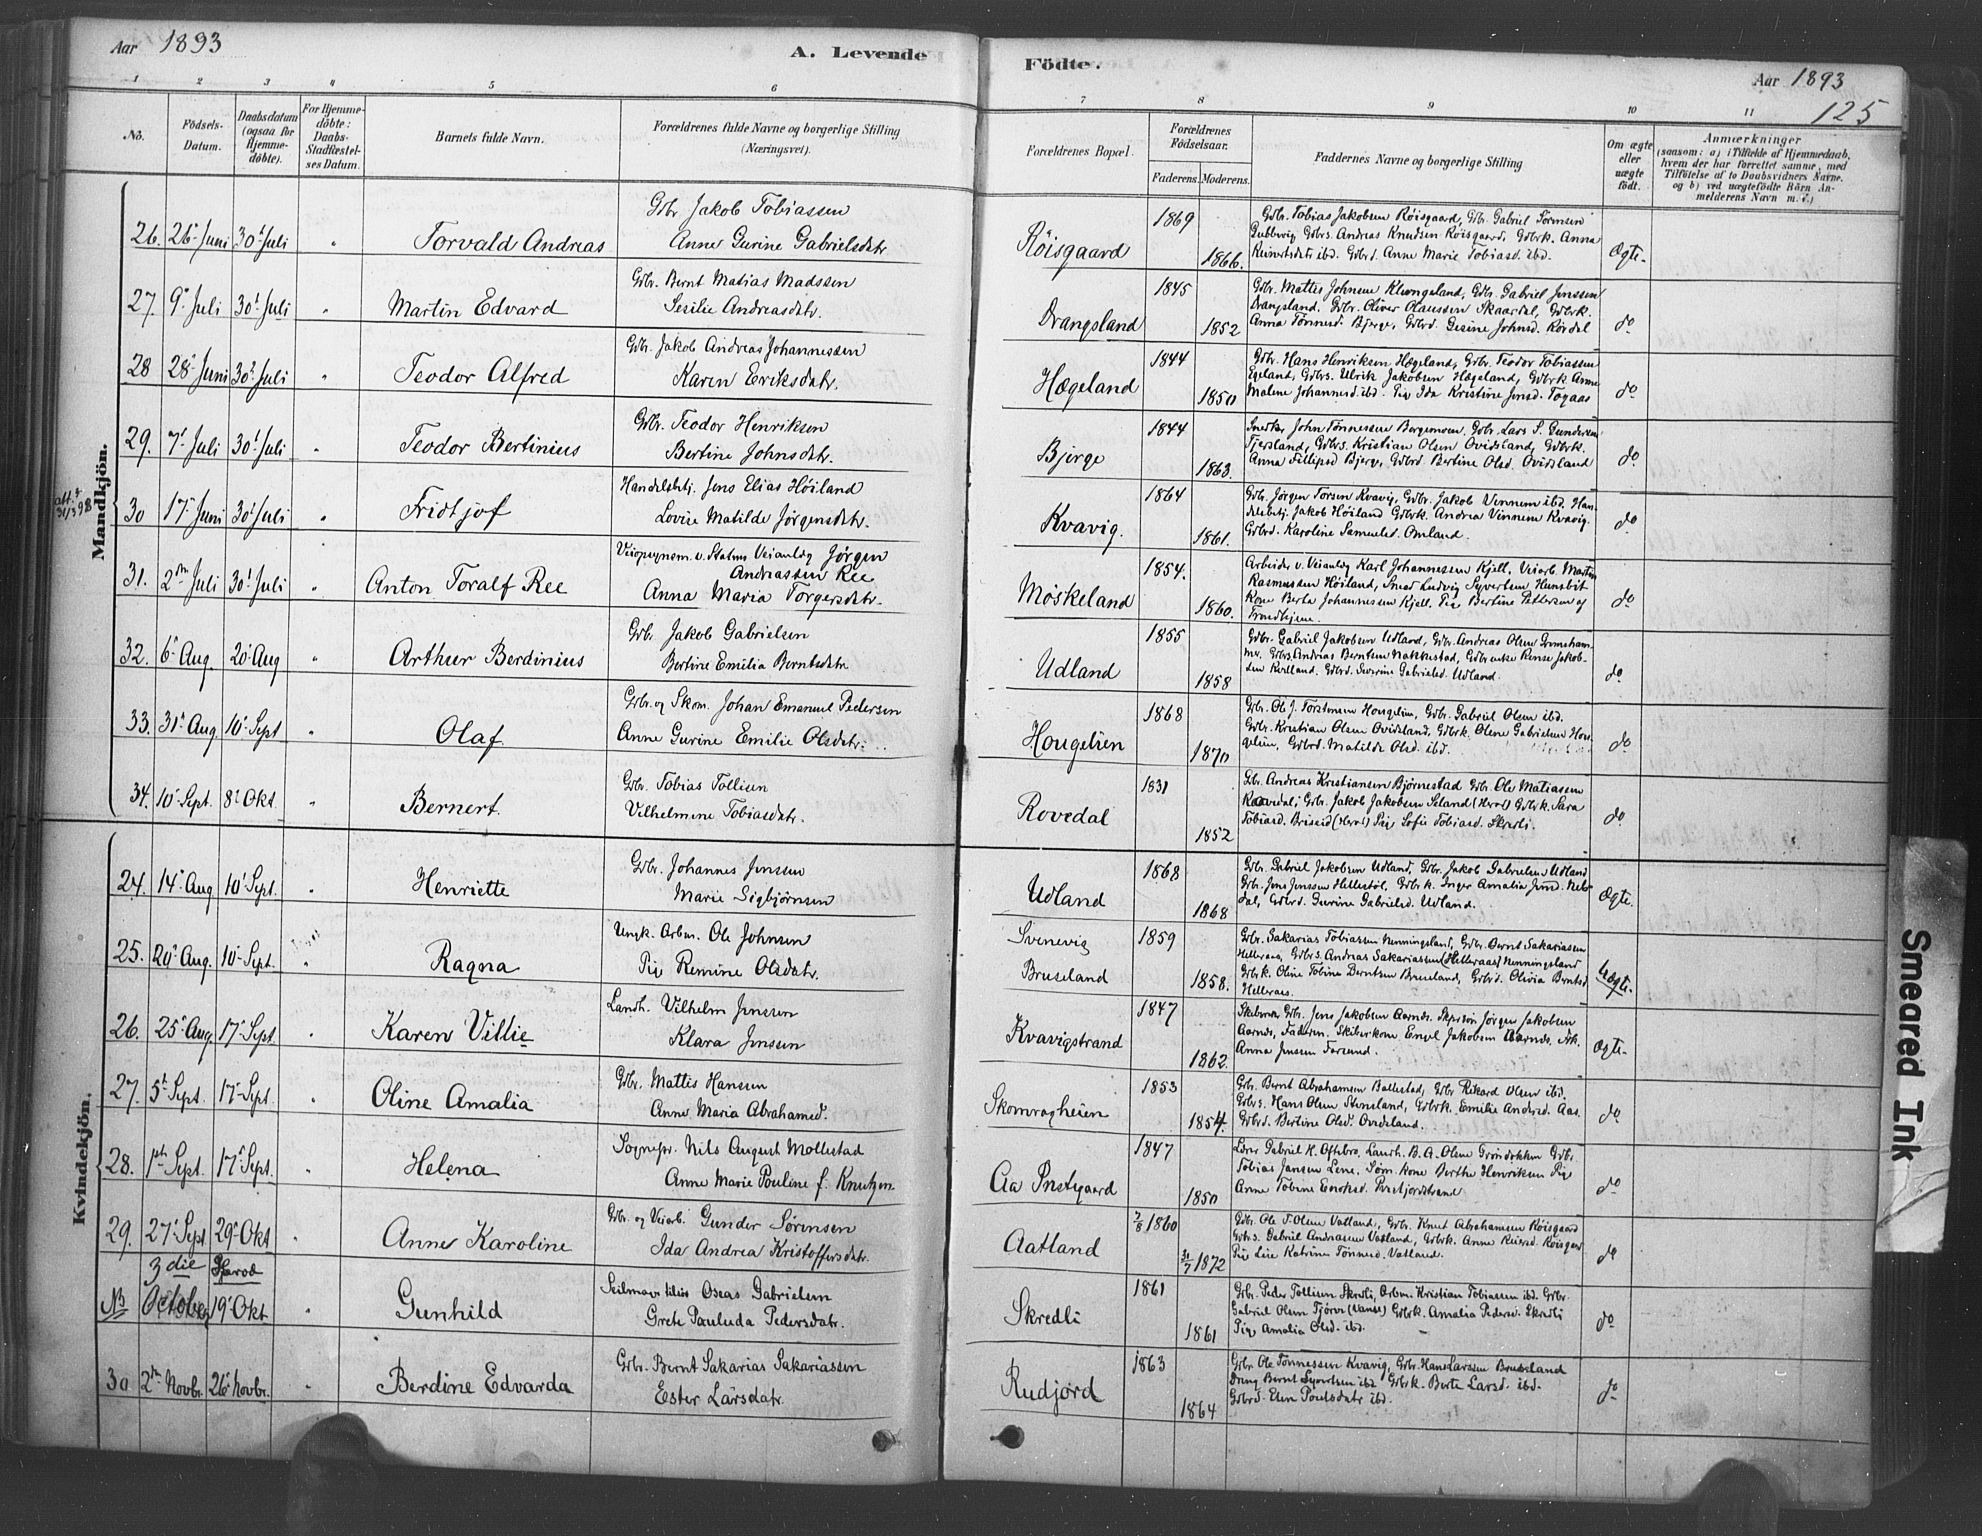 Aar 1893
A. Levende
Födte.
Aar 1893
125
1 2 3 4 5 6 7 8 9 10 11
No.
Födsels-
Datum.
Daabsdatum
(ogsaa for
Hjemme-
döbte).
For Hjemme-
döbte:
Daabs-
Stadfæstel-
ses Datum.
Barnets fulde Navn.
Forældrenes fulde Navne og borgerlige Stilling
(Næringsvei).
Forældrenes Bopæl.
Forældrenes
Födselsaar.
Faderens. Moderens.
Faddernes Navne og borgerlige Stilling
Om ægte
eller
uægte
födt.
Anmærkninger
(saasom: a) i Tilfælde af Hjemmedaab,
hvem der har forrettet samme, med
Tilföielse af to Daabsvidners Navne.
og b) ved uægtefödte Börn An-
melderens Navn m. v.)
Mandkjön.
26. 26' Juni 30' Juli " Torvald Andreas
Gbr. Jakob Tobiassen
Anne Gurine Gabrielsdatr.
Röisgaard 1869 1866.
Gbr. Tobias Jakobsen Röisgaard, Gbr. Gabriel Törnsen
Gubbevig Gbrs. Andreas Knudsen Röisgaard, Gbrk. Anna
Reinertsdatr ibd. Gbrd. Anne Marie Tobiasd. ibd.
Ægte.
27. 9' Juli 30' Juli " Martin Edvard
Gbr. Bernt Matias Madssen
Sesilie Andreasdatr.
Drangsland 1845 1852
Gbr. Mattis Johnsen Klungeland, Gbr. Gabriel Jenssen
Drangsland. Gbr. Oliver Olaussen Skaardal, Gbrk.
Anna Tönnesd. Bjerge, Gbrd. Gesine Johnsd. Rördal
do
28 28' Juni 30' Juli " Teodor Alfred
Gbr. Jakob Andreas Johannessen
Karen Eriksdatr.
Hægeland 1844 1850
Gbr. Hans Henriksen Hægeland, Gbr. Teodor Tobiassen
Egeland, Gbrs. Ulrik Jakobsen Hægeland, Gbrk Anne
Malene Johannesd. ibd. Pig Ida Kristine Jensd.
do
29. 7' Juli 30' Juli " Teodor Bertinius
Gbr. Teodor Henriksen
Bertine Johnsdatr.
Bjerge 1844 1863.
John Tönnessen Borgemoen, Gbr. Lars S. Gundersen
Tjersland, Gbrs. Kristian Olsen Ovidsland, Gbrk.
Anna Fillipsd Bjerge, Gbrd Bertine Olsd. Ovidsland
do
30 17' Juni 30' Juli " Fridtjof
Handelsbtj. Jens Elias Höiland
Lovise Matilde Jörgensdatr.
Kvavig. 1864 1861.
Gbr. Jörgen Torsen Kvavig, Gbr. Jakob Vinnem ibd. Han-
delsbtj. Jakob Höiland Gbrk. Andrea Vinnem Kvavig.
Gbrd. Karoline Samuelsd. Omland.
do
31. 2den Juli 30' Juli " Anton Toralf Ree
v. Statens Veianlæg Jörgen
Andreassen Ree
Anna Maria Torgersdatr.
Möskeland 1854. 1860.
Arbeider v. Veianlæg Karl Johannessen Kjell, Veiarb. Martin
Rasmussen Höiland, Ludvig Syvertsen Hunsbit
Kone Berte Johannesen Kjell, Pig Bertine Pettersen af
Trondhjem.
do
32. 6' Aug. 20' Aug " Arthur Berdinius
Gbr. Jakob Gabrielsen
Bertine Emilia Berntsdatr.
Udland 1855 1858
Gbr. Gabriel Jakobsen Udland, Gbr. Andreas Olsen
Gbrs Andreas Berntsen Nakkestad, Gbrenke Rense Jakob-
sen Kvilland. Gbrd. Severine Gabrielsd. Udland.
do
33. 31' Aug 10' Sept " Olaf
Gbr. og Skom. Johan Emanuel Pedersen
Anne Gurine Emilie Olsdatr.
Hougelien 1868 1870
Gbr. Ole J. Torstensen Hougelien, Gbr. Gabriel Olsen ibd.
Gbr. Kristian Olsen Ovidsland, Gbrk. Olene Gabrielsen Hou-
gelien, Gbrd. Matilde Olsd. ibd.
do
34. 10' Sept. 8' Okt. " Bernert.
Gbr. Tobias Tollisen
Vilhelmine Tobiasdatr.
Rovedal 1831 1852
Gbr. Andreas Kristiansen Björnestad Gbr. Ole Matiassen
Rovedal; Gbr. Jakob Jakobsen Seland (Hvol) Gbrk. Sara
Tobiasd. Briseid (Hvol) Pig Sofie Tobiasd. Skredli.
do
Kvindekjön.
24. 14' Aug 10' Sept. " Henriette
Gbr. Johannes Jenssen
Marie Sigbjörnsen
Udland 1868 1868
Gbr. Gabriel Jakobsen Udland, Gbr. Jakob Gabrielsen Udland
Gbr. Jens Jenssen Hellestöl, Gbrk. Inger Amalia Jensd.
dal, Gbrd. Gurine Gabrielsd. Udland.
Ægte.
25. 20' Aug. 10' Sept. " Ragna
Ungk. Arbm. Ole Johnsen
Pig Remine Olsdatr.
Svenevig
Bruseland 1859 1858.
Gbr. Sakarias Tobiassen Nenningsland, Gbr. Bernt Sakariassen
Helleraas, Gbrs. Andreas Sakariassen (Helleraas) Nenningsland
Gbrk. Oline Tobine Berntsen Bruseland, Gbrd. Olivia Berntsd
Helleraas.
Uægte.
26. 25' Aug. 17' Sept. " Karen Villie
Landh. Vilhelm Jenssen
Klara Jensen
Kvavigstrand 1847 1862.
Gbr. Jens Jakobsen Aarnes. Jörgen Jakobsen
Aarnes, Faderen. Skiberkone Engel Jakobsen Aarnes.
Anna Jenssen Farsund.
Ægte.
27. 5' Sept. 17' Sept. " Oline Amalia
Gbr. Mattis Hansen
Anne Maria Abrahamsd.
Skomragheien 1853 1854.
Gbr. Bernt Abrahamsen Ballestad, Gbr Rikard Olsen ibd.
Gbrs. Hans Olsen Steneland, Gbrk. Emilie Andersd. Aas.
Gbrd. Bertine Olsd. Ovidsland.
do
28. 1st Sept. 17' Sept. " Helena
Sognepr. Nils August Mollestad
Anne Marie Pouline f. Knutzen
Aa Prstgaard 1847 1850
Gabriel K. Oftebro, Landh. B. A. Olsen Gröndokken Gbr.
Tobias Jansen Lene. Kone Berthe Henriksen Pig
Anne Tobine Enoksd.
do
29. 27' Sept. 29' Okt. " Anne Karoline
Gbr. og Veiarb. Gunder Sörensen
Ida Andrea Kristoffersdatr.
Aatland 7/8 1860 31/7 1872
Gbr. Ole T. Olsen Vatland, Gbr. Knut Abrahamsen Röisgaard
Gbrs. Gabriel Andreassen Vatland, Gbrk. Anne Reiersd. Röisgard
Pig Lise Katrine Tönnesd. Vatland.
do
NB 3die October 19' Okt. " Gunhild
Oscar Gabrielsen
Grete Paulida Pedersdatr.
Skredli 1861 1861
Gbr. Peder Tollisen Skredli, Arbm. Kristian Tobiassen ibd. Gbr.
Gabriel Olsen Tjörve (Vanse) Gbrk. Amalia Pedersd. Skredli
Pig Amalia Olsd. ibd.
do
30 2den Novbr. 26' Novbr. " Berdine Edvarda
Gbr. Bernt Sakarias Sakariassen
Ester Larsdatr.
Rudjord 1863 1864
Gbr. Ole Tönnessen Kvavig, Gbr. Hans Larssen Bruseland
Dreng Bernt Syvertsen ibd Gbrk. Berte Larsd. ibd.
Gbrd. Elen Poulsdatr ibd.
do
Smeared Ink